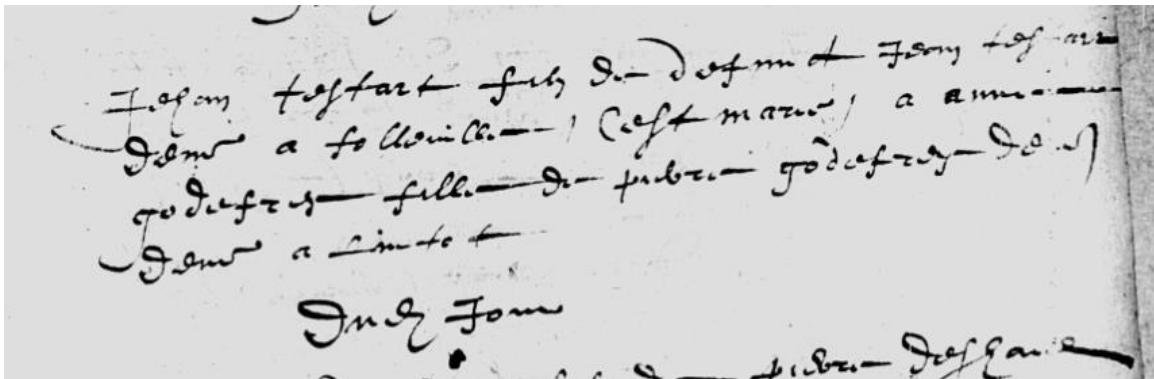 Jehan testart filz de defunct Jean testart
deme a folleville, Cest marié, a anne
godefrey fille de pierre godefrey de
deme a Limtot
Dud Jour
pierre deshaie